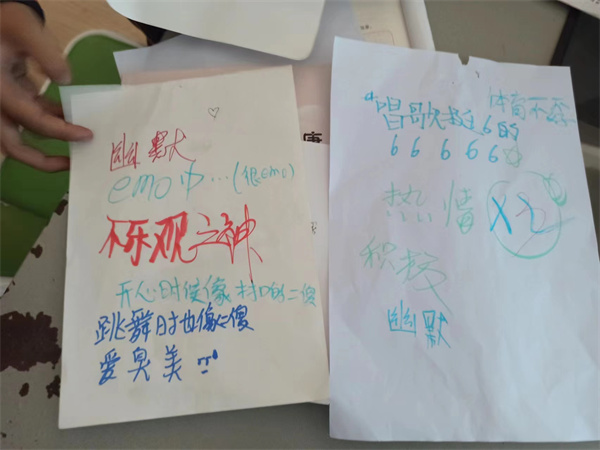 幽默
emo中…(很emo)
乐观之神
开心时候像村口的二傻
跳舞时也像二傻
爱臭美
康
唱歌教主6的
体育不
6 6 6 6 6
热情 X2
积极
幽默